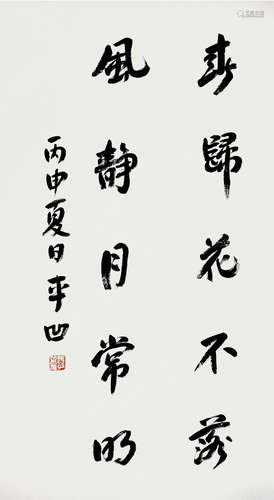 春歸花不落
風静月常明
丙申夏日平凹